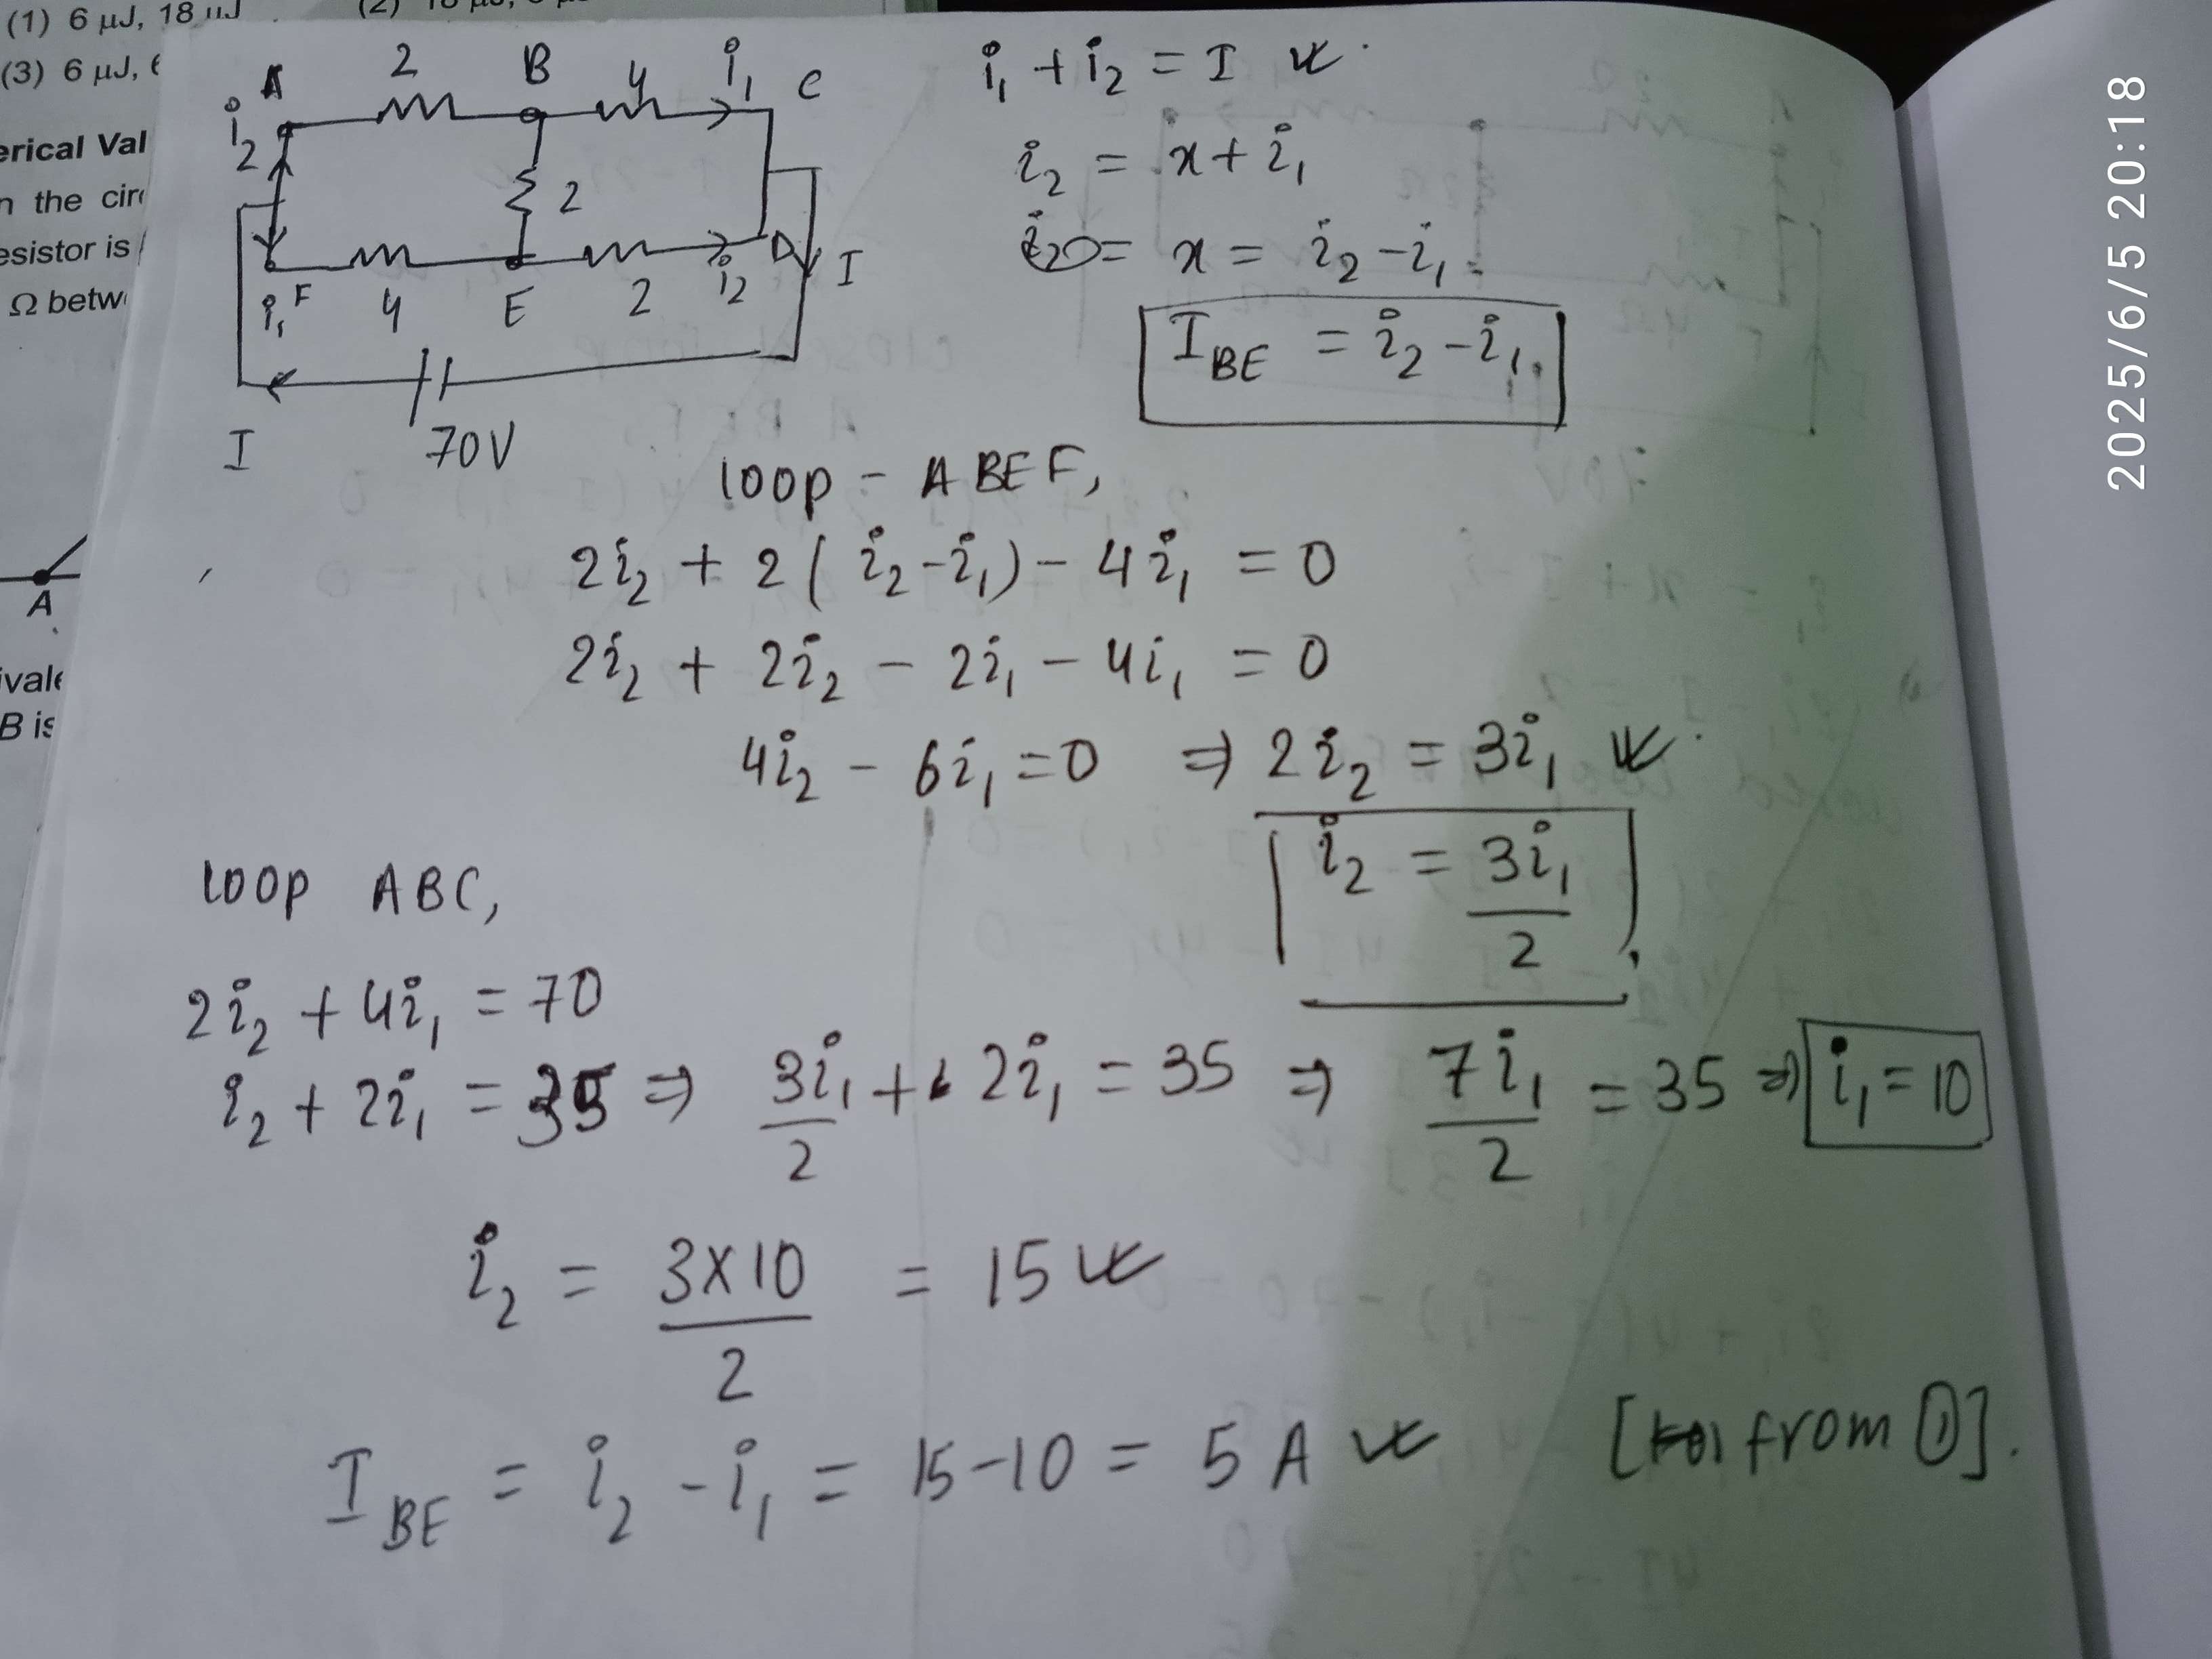 (1) 6 μJ, 18 μJ
(3) 6 μJ, 6
erical Val
n the circ
esistor is
Ω betw
A
ivale
B is
A 2 B 4 i₁ C
i₂
2
F 4 E 2 i₂ D I
i₁
I 70V
i₁ + i₂ = I
i₂ = x + i₁
x = i₂ - i₁
I_BE = i₂ - i₁.
loop - ABEF,
2i₂ + 2(i₂ - i₁) - 4i₁ = 0
2i₂ + 2i₂ - 2i₁ - 4i₁ = 0
4i₂ - 6i₁ = 0 ⇒ 2i₂ = 3i₁
i₂ = 3i₁/2
loop ABC,
2i₂ + 4i₁ = 70
i₂ + 2i₁ = 35 ⇒ 3i₁/2 + 2i₁ = 35 ⇒ 7i₁/2 = 35 ⇒ i₁ = 10
i₂ = 3×10/2 = 15
I_BE = i₂ - i₁ = 15 - 10 = 5 A [from ①].
2025/6/5 20:18